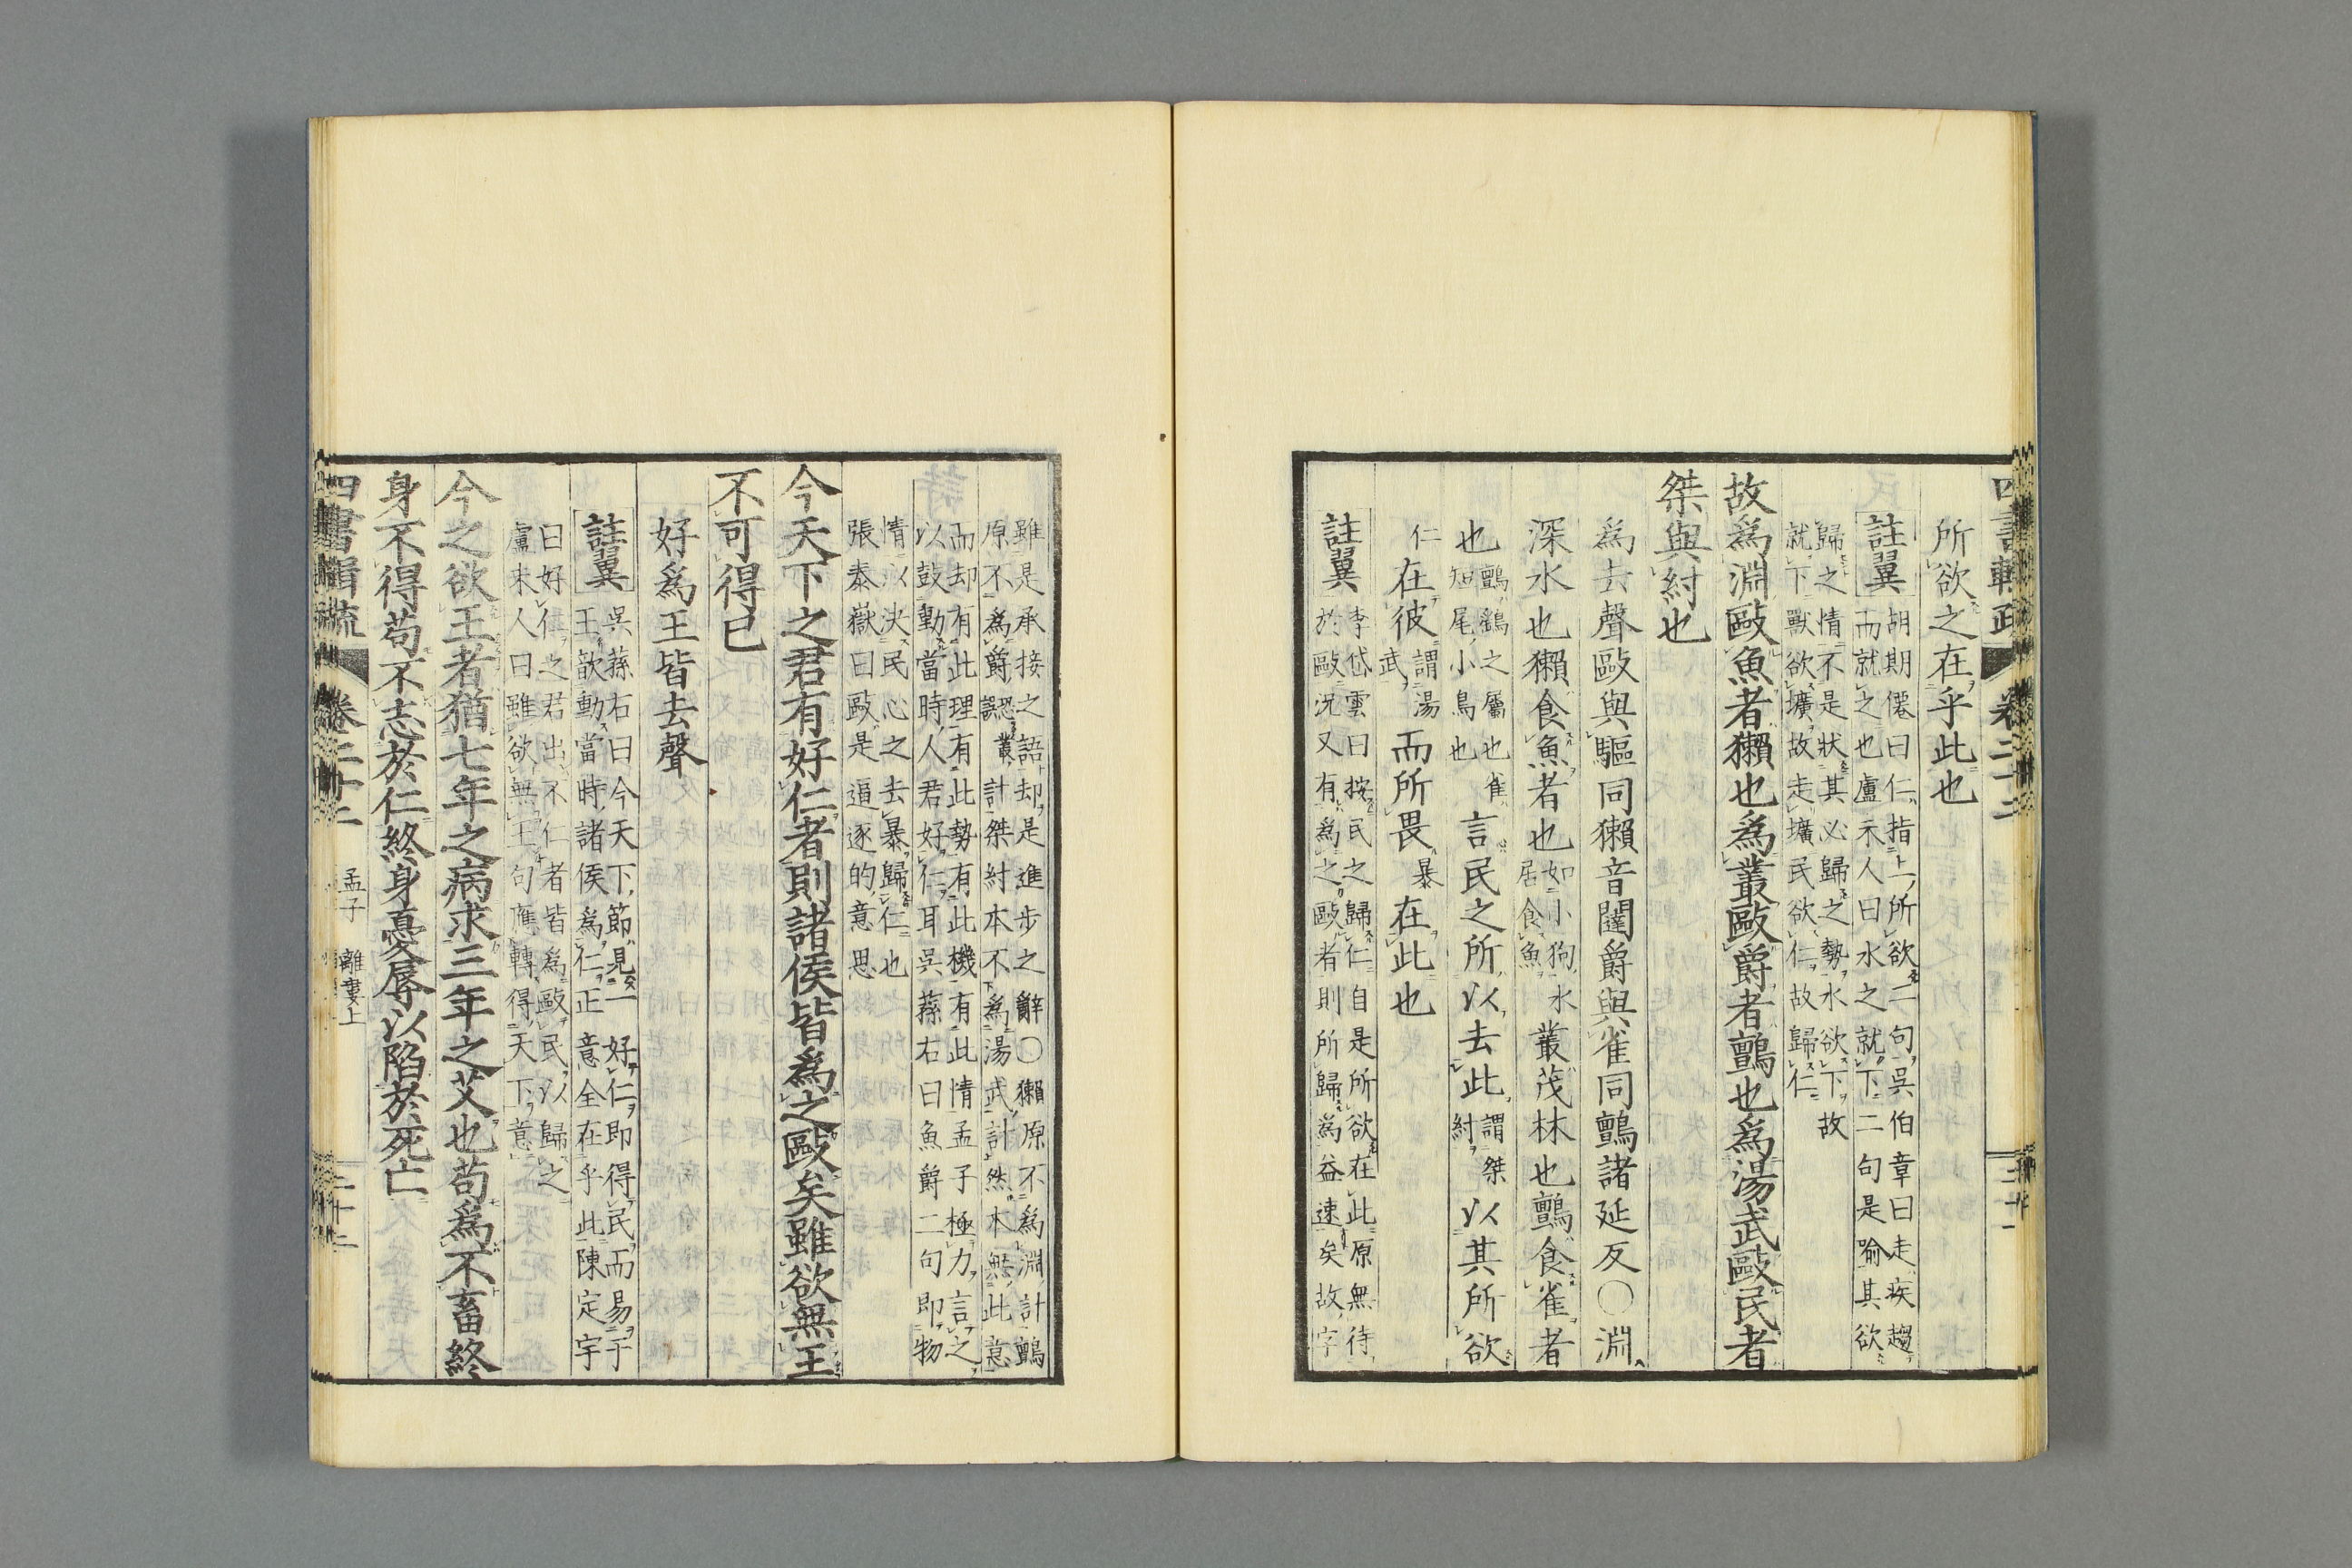 四書輯疏 卷二十二 二十一
所欲之在乎此也
註翼
胡期僊曰仁指上所欲二句吳伯章曰走疾趨
而就之也盧未人曰水之就下二句是喻其欲
歸之情不是狀其必歸之勢水欲下故
就下獸欲壙故走壙民欲仁故歸仁
故爲淵敺魚者獺也爲叢敺爵者鸇也爲湯武敺民者
桀與紂也
爲去聲敺與驅同獺音闥爵與雀同鸇諸延反○淵
深水也獺食魚者也
如小狗水
居食魚
叢茂林也鸇食雀者
也
鸇鷂之屬也雀
短尾小鳥也
言民之所以去此
謂桀
紂
以其所欲
仁
在彼
謂湯
武
而所畏
暴
在此也
註翼
李岱雲曰按民之歸仁自是所欲在此原無待
於敺況又有爲之敺者則所歸爲益速矣故字
雖是承接之語却是進步之辭○獺原不爲淵計鸇
原不爲爵
叢計桀紂本不爲湯武計然本無此意
而却有此理有此勢有此機有此情孟子極力言之
以鼓動當時人君好仁耳吳蓀右曰魚爵二句即物
情以決民心之去暴歸仁也
張泰嶽曰敺是逼逐的意思
今天下之君有好仁者則諸侯皆爲之敺矣雖欲無王
不可得已
好爲王皆去聲
註翼
吳蓀右曰今天下節見一好仁即得民而易于
王歆動當時諸侯爲仁正意全在乎此陳定宇
曰好仁之君出不仁者皆爲敺民以歸之
盧未人曰雖欲無王句應轉得天下意
今之欲王者猶七年之病求三年之艾也苟爲不畜終
身不得苟不志於仁終身憂辱以陷於死亡
四書輯疏 卷二十二 孟子 離婁上 二十二